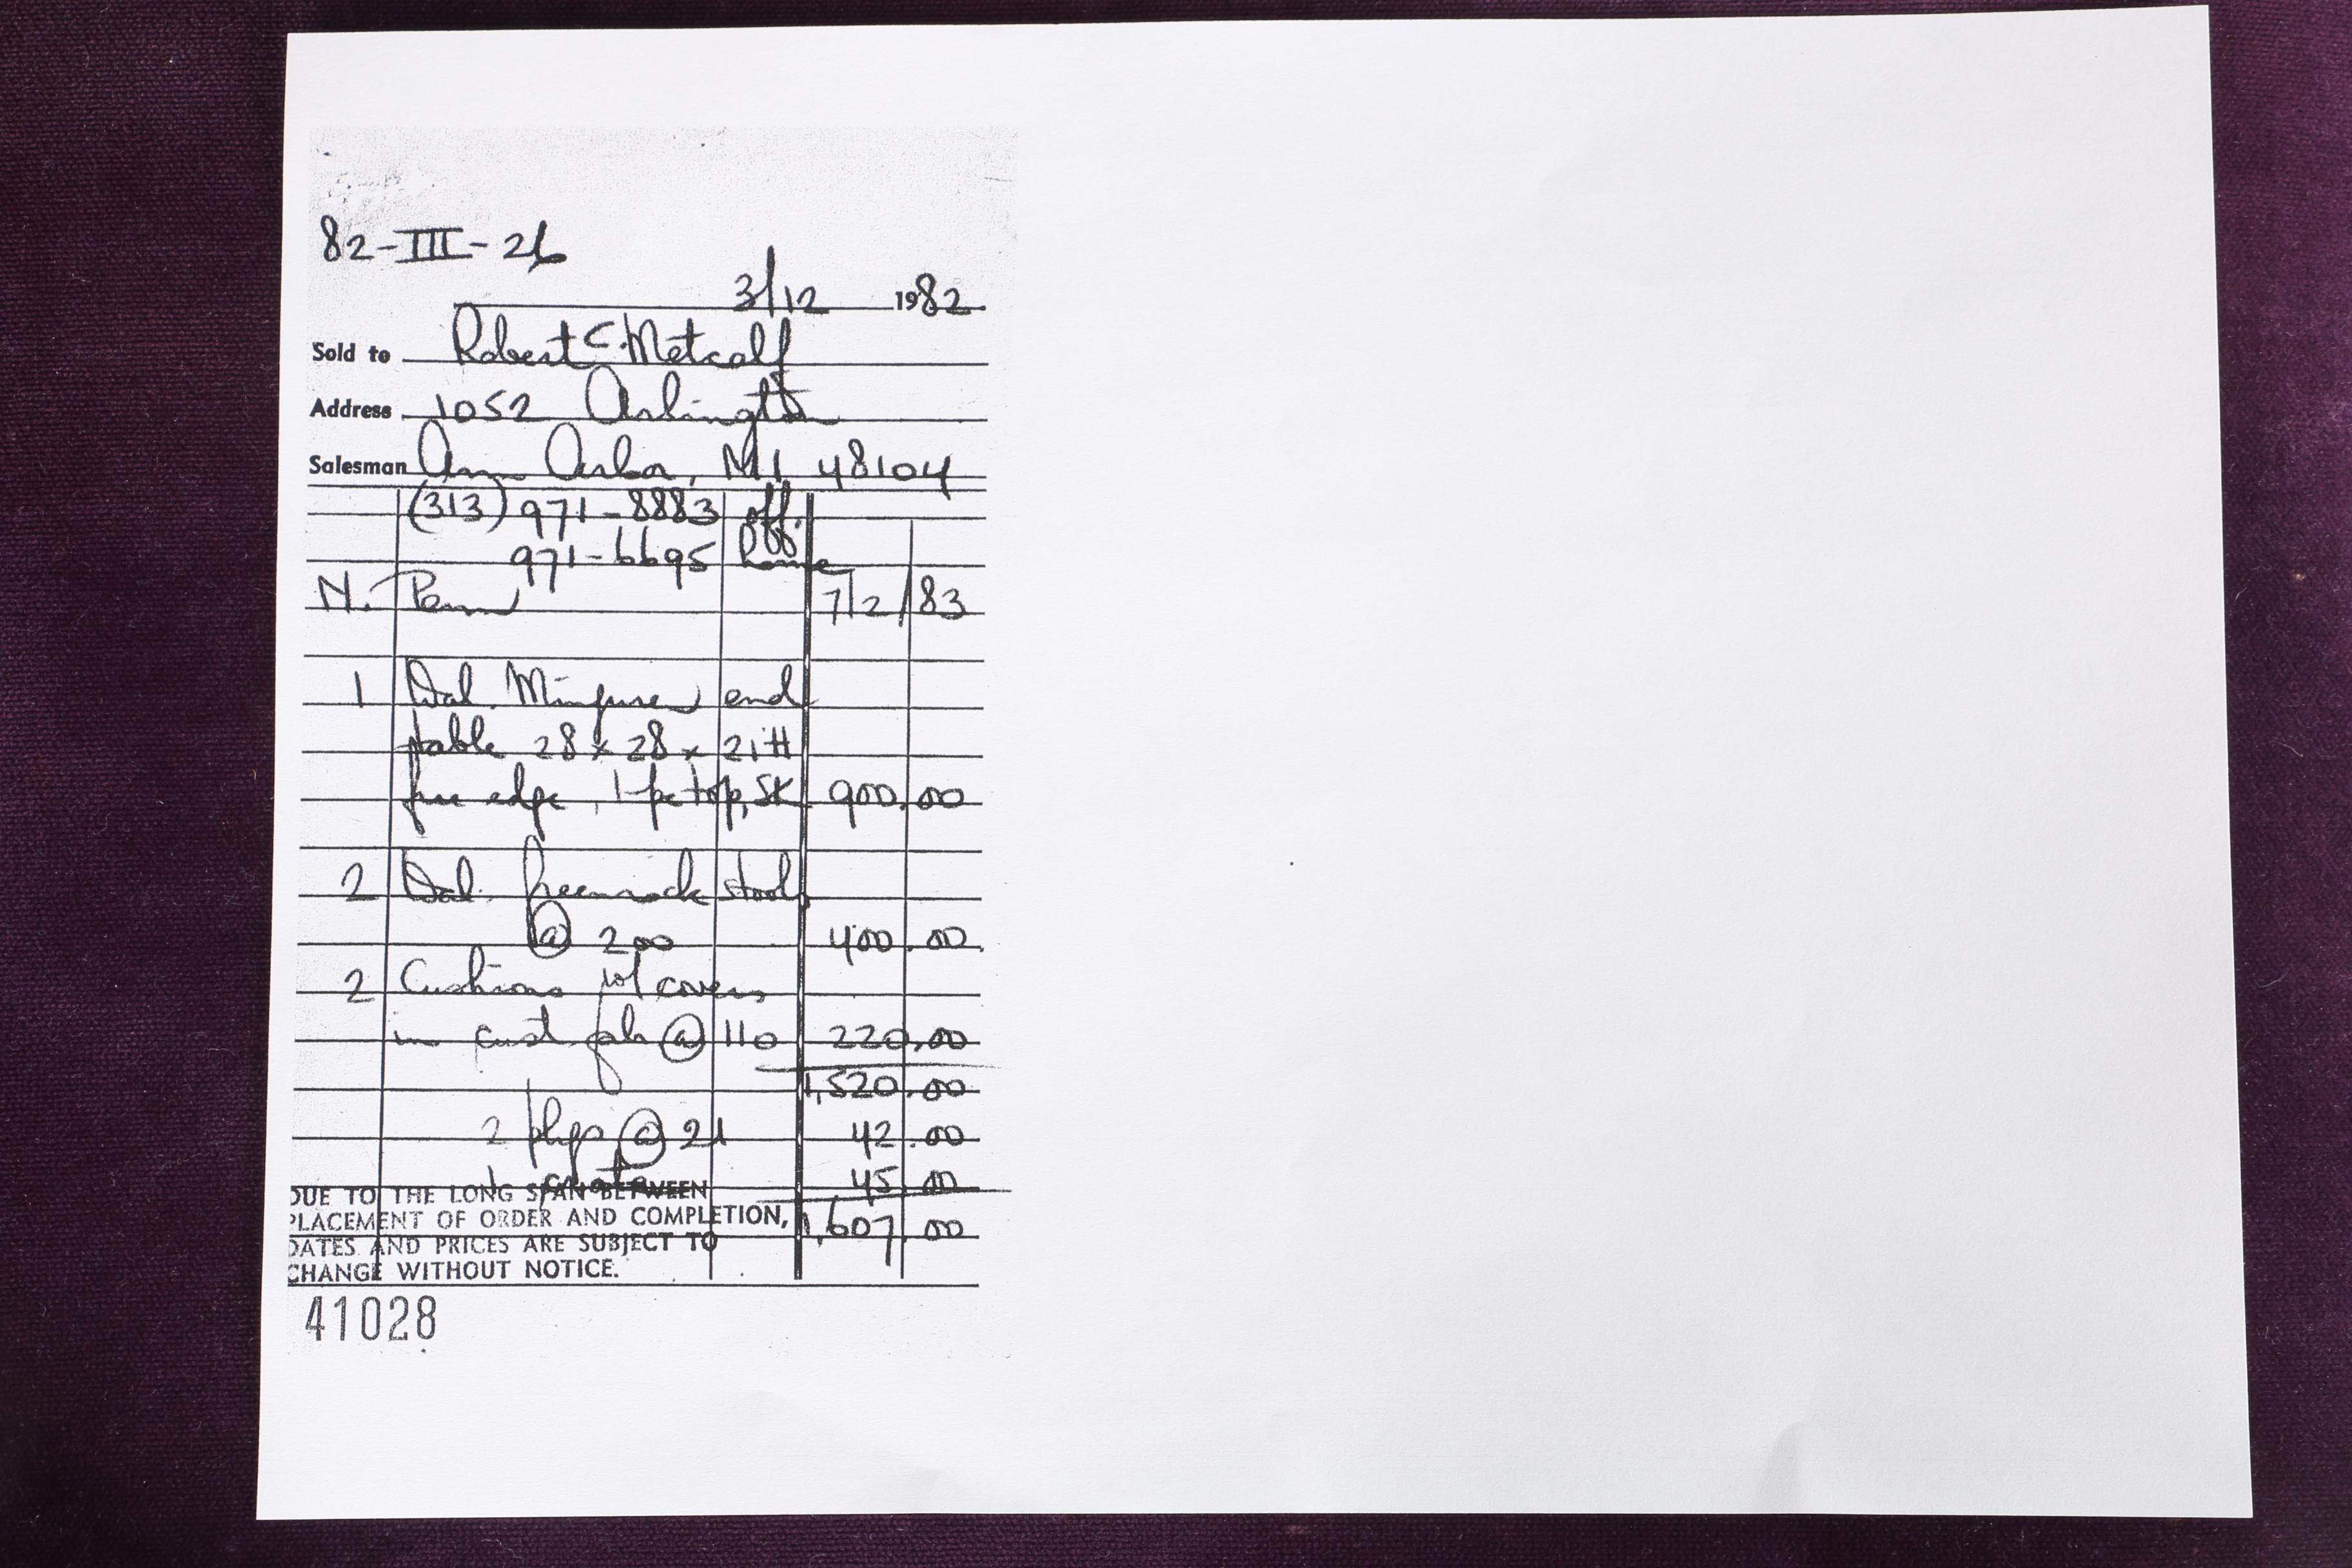 82-III-26
3/12 1982
Sold to Robert C. Metcalf
Address 1052 Arlington
Salesman Ann Arbor, MI 48104
(313) 971-8883 off.
971-6695 home
N. Penn 7/2/83
1 Wal. Minguren end
table 28 x 28 x 21 H
free edge, 1-pc top, SK 900.00
2 Wal. Greenrock stools
@ 200 400.00
2 Cushions w/ covers
in cust. fab @ 110 220.00
1,520.00
2 pkgs @ 21 42.00
1 crate 45.00
DUE TO THE LONG SPAN BETWEEN
PLACEMENT OF ORDER AND COMPLETION, 1,607.00
DATES AND PRICES ARE SUBJECT TO
CHANGE WITHOUT NOTICE.
41028